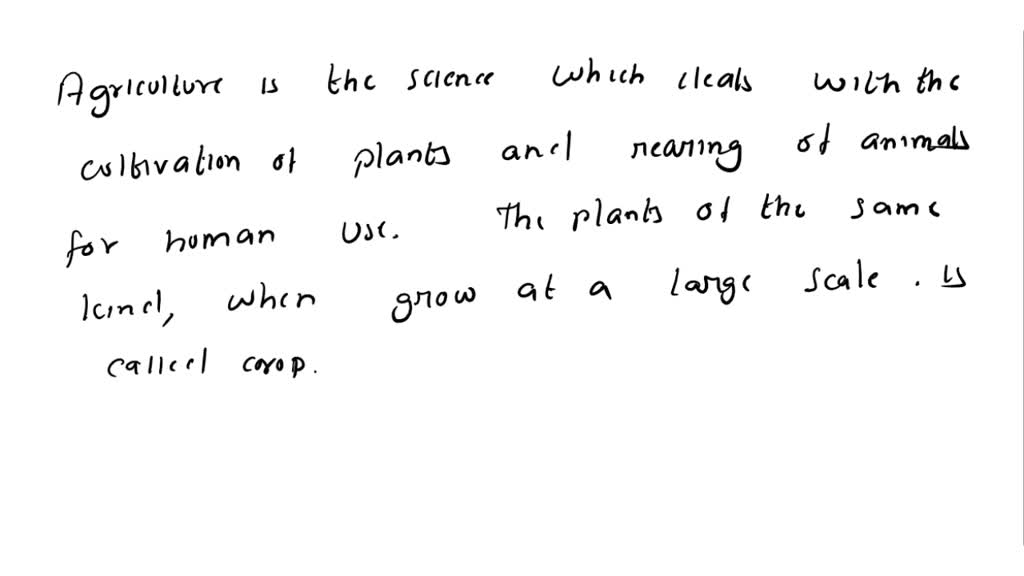 Agriculture is the science which deals with the
cultivation of plants and rearing of animals
for human use. The plants of the same
kind, when grow at a large scale . is
called crop.